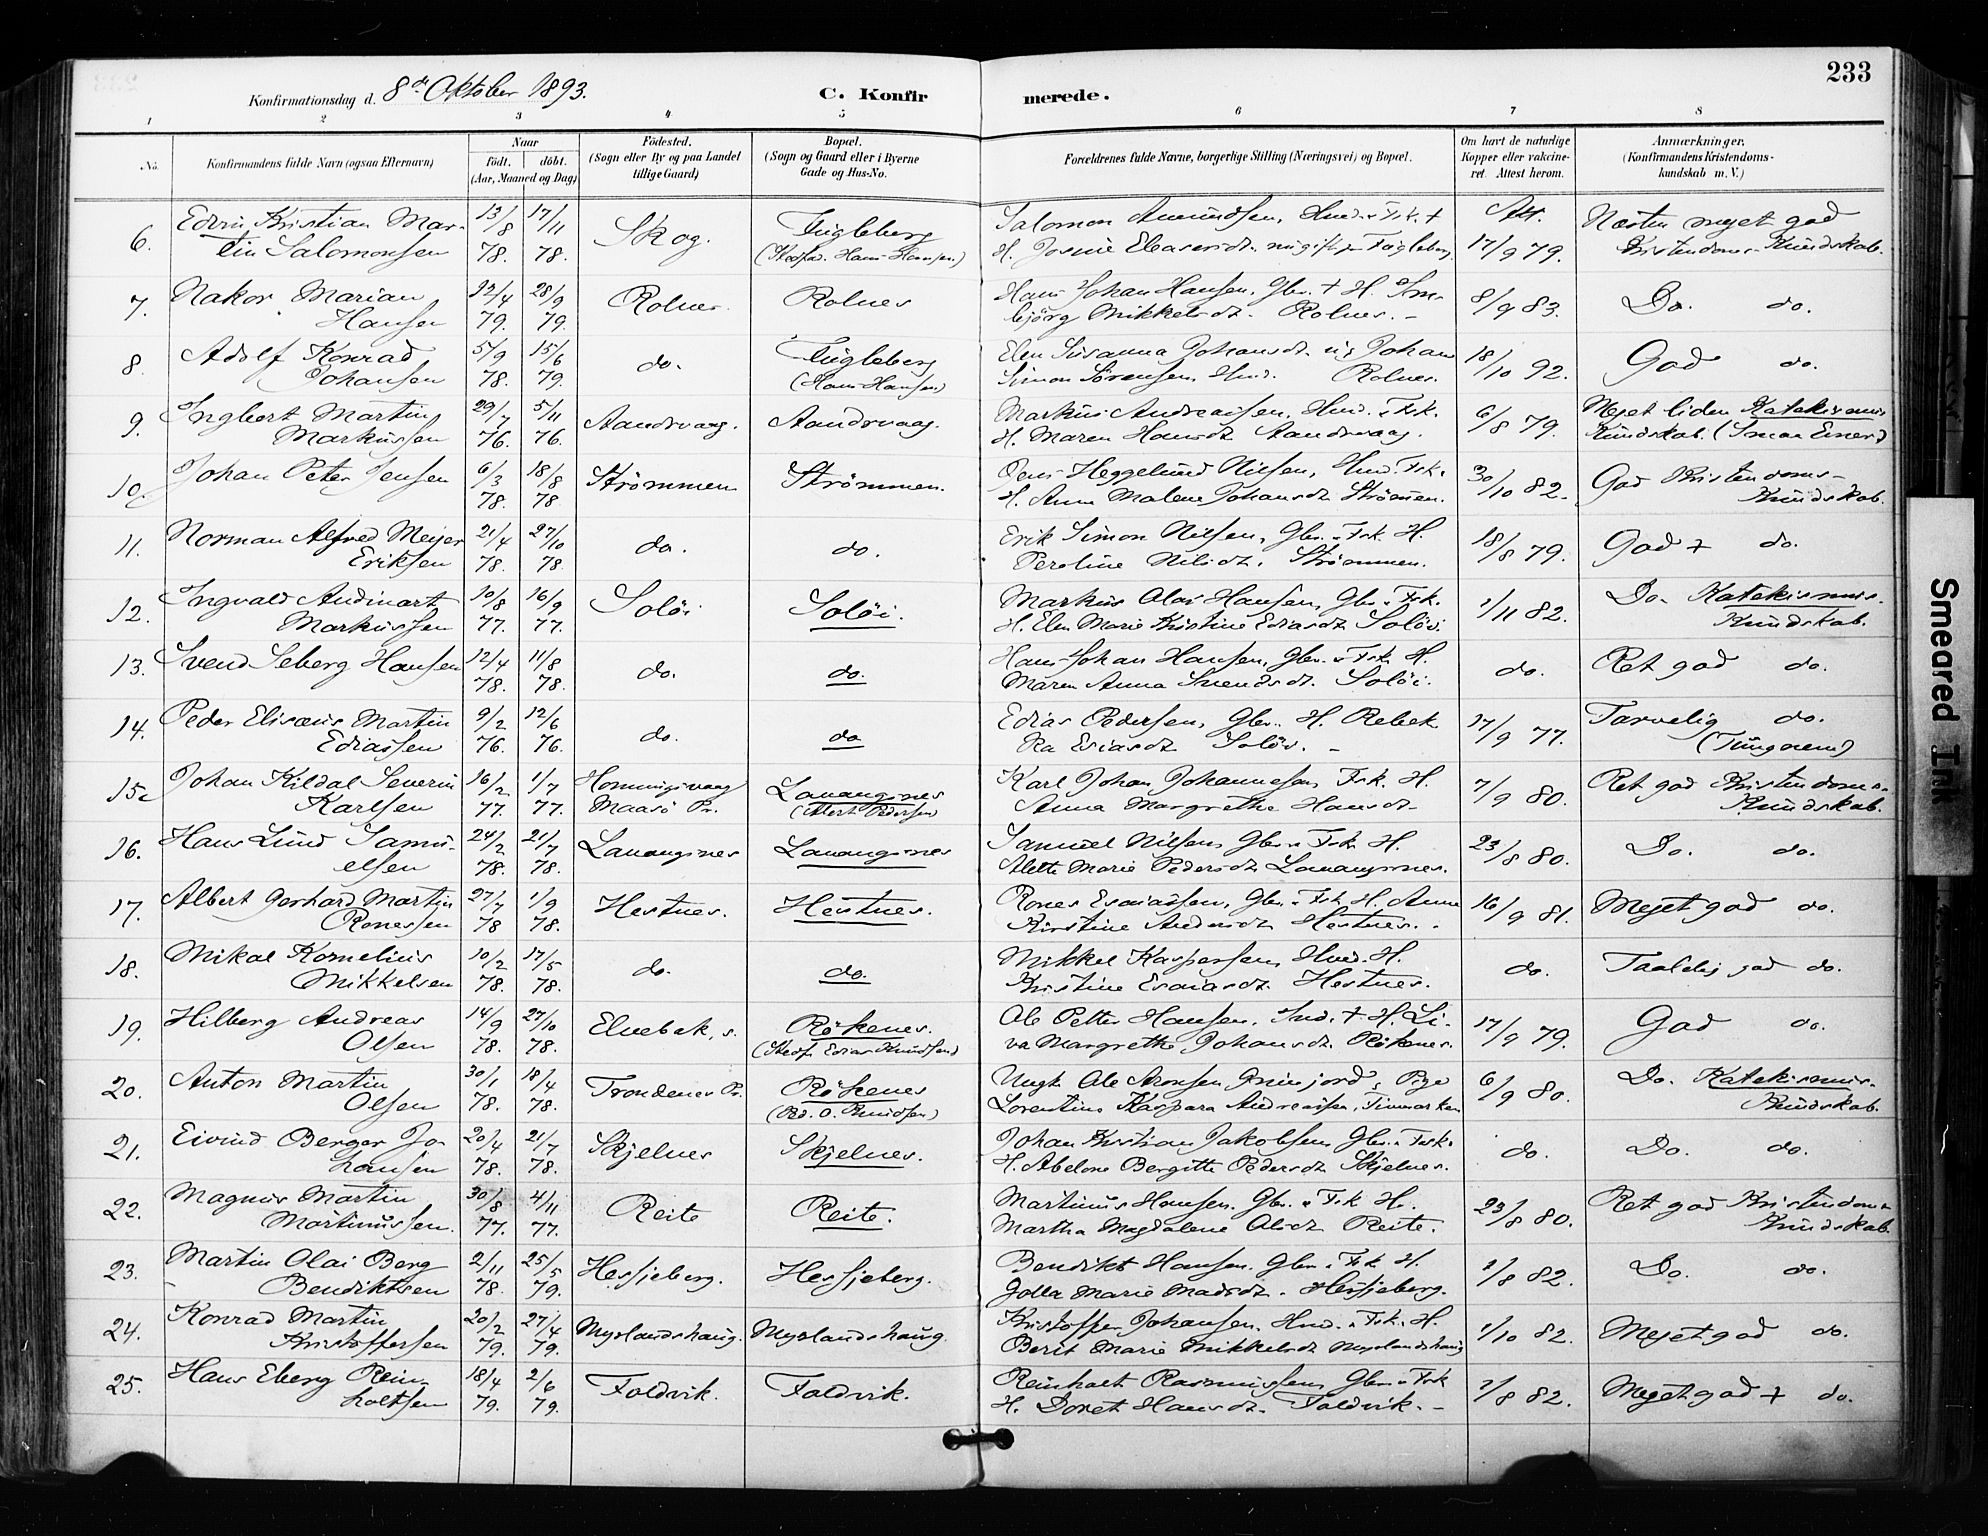 233
Konfirmationsdag d. 8de Oktober 1893.
C. Konfir merede.
1 2 3 4 5 6 7 8
No.
Konfirmandens fulde Navn (ogsaa Efternavn)
Naar
födt. döbt.
(Aar, Maaned og Dag)
Födested.
(Sogn eller By og paa Landet
tillige Gaard)
Bopæl.
(Sogn og Gaard eller i Byerne
Gade og Hus-No.
Forældrenes fulde Navne, borgerlige Stilling (Næringsvei) og Bopæl.
Om havt de naturlige
Kopper eller vakcine-
ret. Attest herom.
Anmærkninger.
(Konfirmandens Kristendoms-
kundskab m. V.)
6. Edvin Kristian Mar- 13/8 17/11 Skog. Fugleberg Salomon Amundsen, Att. Næsten meget god
tin Salomonsen 78. 78. Hans Hansen) H. 17/9 79. Kristendoms-Kundskab.
7. Nakor Marian 12/4 28/9 Rolnes. Rolnes Hans Johan Hansen, Gbr. + H. 8/9 83. Do. do.
Hansen 79. 79. Mikkelsdt. Rolnes. -
8. Adolf Konrad 5/9 15/6 do. Fugleberg Elen Susanna Johansdt. Johan 18/10 92. God do.
Johansen 78. 79. (Hans Hansen) Simon Sörensen, Rolnes.
9. Ingbert Martin 29/7 5/11 Aandsvaag. Aandsvaag. Markus Andreassen, Fsk. 6/8 79. Meget liden Katekismus
Markussen 76. 76. H. Maren Hansdt. Aandsvaag. Kundskab.
10. Johan Peter Jensen 6/3 18/8 Strömmen Strömmen. Jens Heggelund Nilsen, Fsk. 30/10 82. God Kristendoms-
78. 78 H. Anna Malene Johansdt. Strömmen. Kundskab.
11. Norman Alfred Meyer 21/4 27/10 do. do. Erik Simon Nilsen, Gbr. Fsk. H. 18/8 79. God + do.
Eriksen 78. 78. Peroline Nilsdt. Strömmen.
12. Ingvald Andinart 10/8 16/9 Solöi Solöi. Markus Olai Hansen, Gbr. Fsk. 1/11 82. Do. Katekismus-
Markussen 77. 77. H. Elen Marie Kristine Esiasdt. Solöi. Kundskab.
13. Svend Seberg Hansen 12/4 11/8 do. do. Hans Johan Hansen, Gbr. Fsk. H. do. Ret god do.
78. 78. Maren Anna Svendsdt. Solöi.
14. Peder Elisæus Martin 9/2 12/6 do. do Edias Pedersen, Gbr. H. Rebek 17/9 77. Tarvelig do.
Ediassen 76. 76. ka Esiasdt. Solöi. - (Tungnem)
15. Johan Kildal Severin 16/2 1/7 Honningsvaag Lavangsnes Karl Johan Johannesen, Fsk. H. 7/9 80. Ret god Kristendoms-
Karlsen 77. 77. Maasö Pr. (Albert Pedersen) Anna Margrethe Hansdt. Kundskab.
16. Hans Lund Samu- 24/2 21/7 Lavangsnes Lavangsnes Samuel Nilsen, Gbr. Fsk. H. 23/8 80. Do. do.
elsen 78. 78. Alette Marie Pedersdt. Lavangsnes.
17. Albert Gerhard Martin 27/7 1/9 Hestnes. Hestnes. Rones Esaiassen, Gbr. Fsk. H. Anne 16/9 81. Meget god do.
Ronessen 78 78. Kirstine Andersdt. Hestnes.
18. Mikal Kornelius 10/2 17/5 do. do. Mikkel Kaspersen, H. do. Taalelig god do.
Mikkelsen 78. 78. Kristine Esaiasdt. Hestnes.
19. Hilberg Andreas 14/9 27/10 Elvebak, s. Rökenes. Ole Petter Hansen, + H. Li- 17/9 79. God do.
Olsen 78. 78. (Stedf. Edias Knudsen) va Margrethe Johansdt. Rökenes.
20. Anton Martin 30/1 18/4 Trondenes Pr. Rökenes Ungk. Ole Aronsen , Pige 6/9 80. Do. Katekismus-
Olsen 78. 78. (Ped. O. Knudsen) Lorentine Kaspara Andreassen,
Kundskab.
21. Eivind Berger Jo- 20/4 21/7 Skjelnes Skjelnes. Johan Kristian Jakobsen Gbr. Fsk. do. Do. do.
hansen 78. 78. H. Abelone Bergitte Pedersdt. Skjelnes.
22. Magnus Martin 30/8 4/11 Reite Reite. Martinus Hansen. Gbr. Fsk H. 23/8 80. Ret god Kristendoms
Martinussen. 77. 77. Martha Magdalene Olsdt. Reite. Kundskab.
23. Martin Olai Berg 2/11 25/5 Hessjeberg. Hessjeberg. Bendikt Hansen. Gbr. Fsk H. 1/8 82. Do. do.
Bendiktsen 78 79. Golla Marie Madsdt. Hessjeberg.
24. Konrad Martin 20/2 27/4 Myrlandshaug. Myrlandshaug. Kristoffer Johansen, Fsk. H. 1/10 82. Meget god do.
Kristoffersen 79. 79. Berit Marie Mikkelsdt. Myrlandshaug
25. Hans Eberg Rein- 18/4 2/6 Foldvik. Foldvik. Reinholt Rasmussen Gbr. Fsk 1/8 82. Meget god + do.
holtsen 79. 79. H. Doret Hansdt. Foldvik. -
Smeared Ink